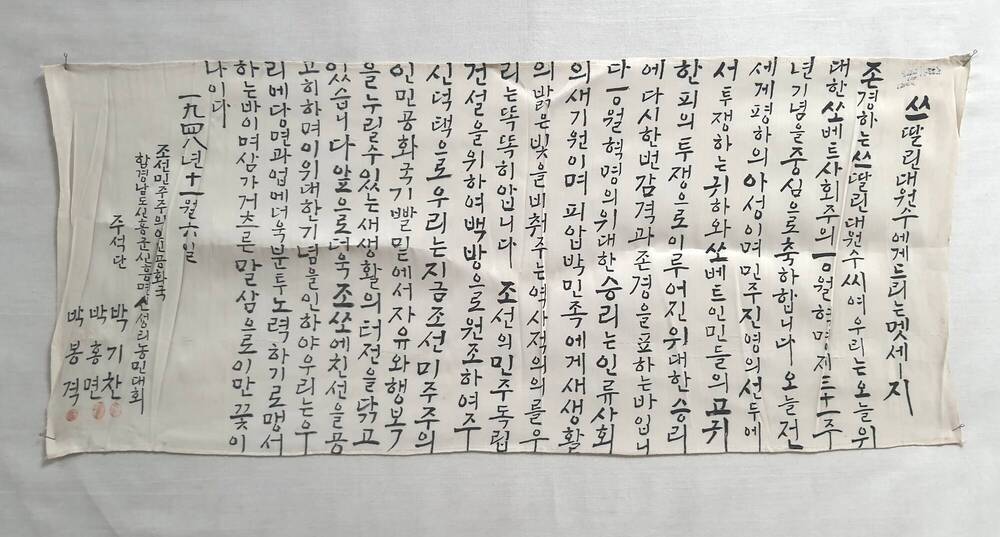 쓰딸린대원수에게드리는멧세-지
존경하는쓰딸린대원수씨여우리는오늘위
대한쏘베트사회주의一〇월혁명제三十一주
년기념을중심으로축하합니다 오늘전
세계평하의아성이며민주진영의선두에
서투쟁하는귀하와쏘베트인민들의고귀
한피의투쟁으로이루어진위대한승리
에다시한번감격과존경을표하는바입니
다一〇월혁명의위대한승리는인류사회
의새기원이며피압박민족에게새생활
의밝은빛을비춰주는역사적의의를우
리는똑똑히압니다 조선의민주독립
건설을위하여백방으로원조하여주
신덕택으로우리는지금조선민주주의
인민공화국기빨밑에서자유와행복
을누릴수있는새생활의터전을닦고
있습니다앞으로더욱조쏘에친선을공
고히하며이위대한기념을인하야우리는우
리에당면과업에더욱분투노력하기로맹서
하는바이며삼가거츠른말삼으로이만끛이
나이다
一九四八년十一월六일
조선민주주의인민공화국
함경남도신흥군신흥면신성리농민대회
주석단
박기찬
박홍면
박봉격